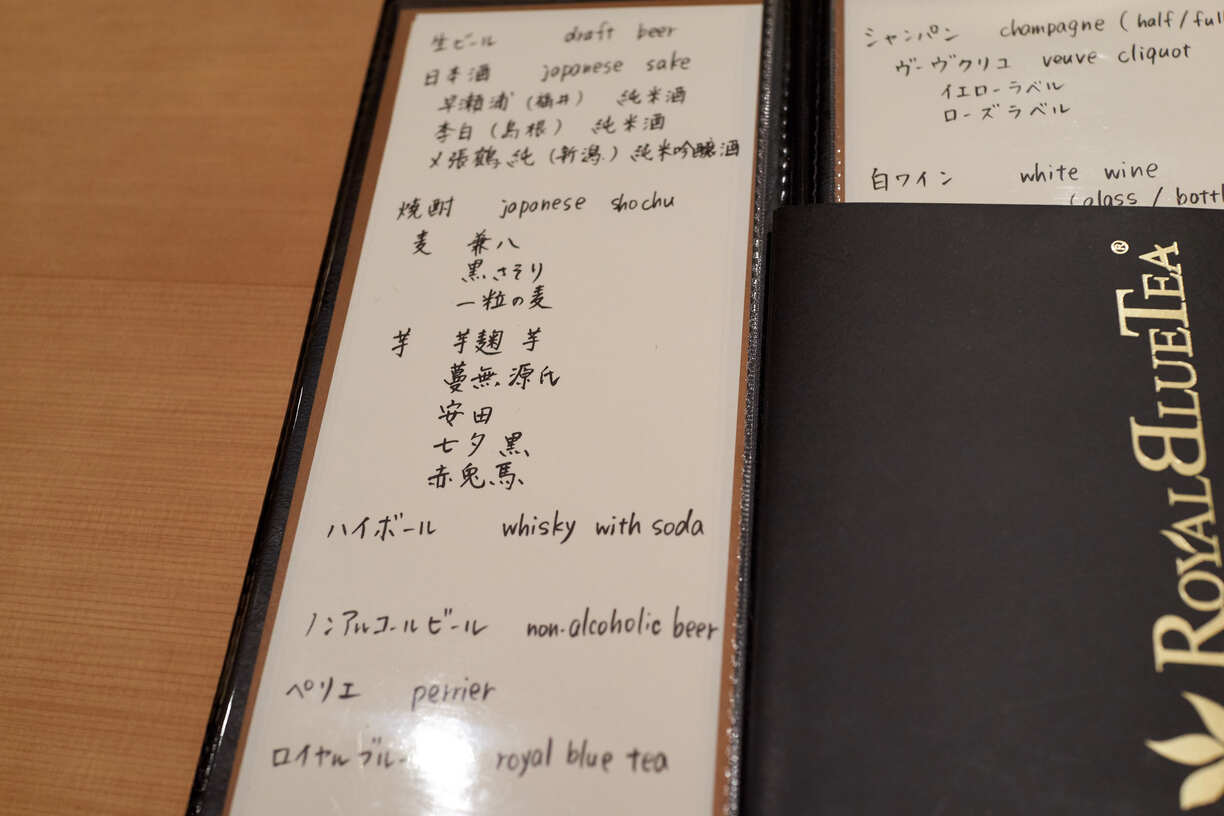 生ビール draft beer
日本酒 japanese sake
早瀬浦（福井） 純米酒
李白（島根） 純米酒
〆張鶴 純（新潟）純米吟醸酒
焼酎 japanese shochu
麦 兼八
黒さそり
一粒の麦
芋 芋麹 芋
蔓無源氏
安田
七夕 黒
赤兎馬
ハイボール whisky with soda
ノンアルコールビール non-alcoholic beer
ペリエ perrier
ロイヤルブルー royal blue tea
シャンパン champagne (half/full
ヴーヴクリコ veuve cliquot
イエローラベル
ローズラベル
白ワイン white wine
(glass / bottl
ROYAL BLUE TEA ®